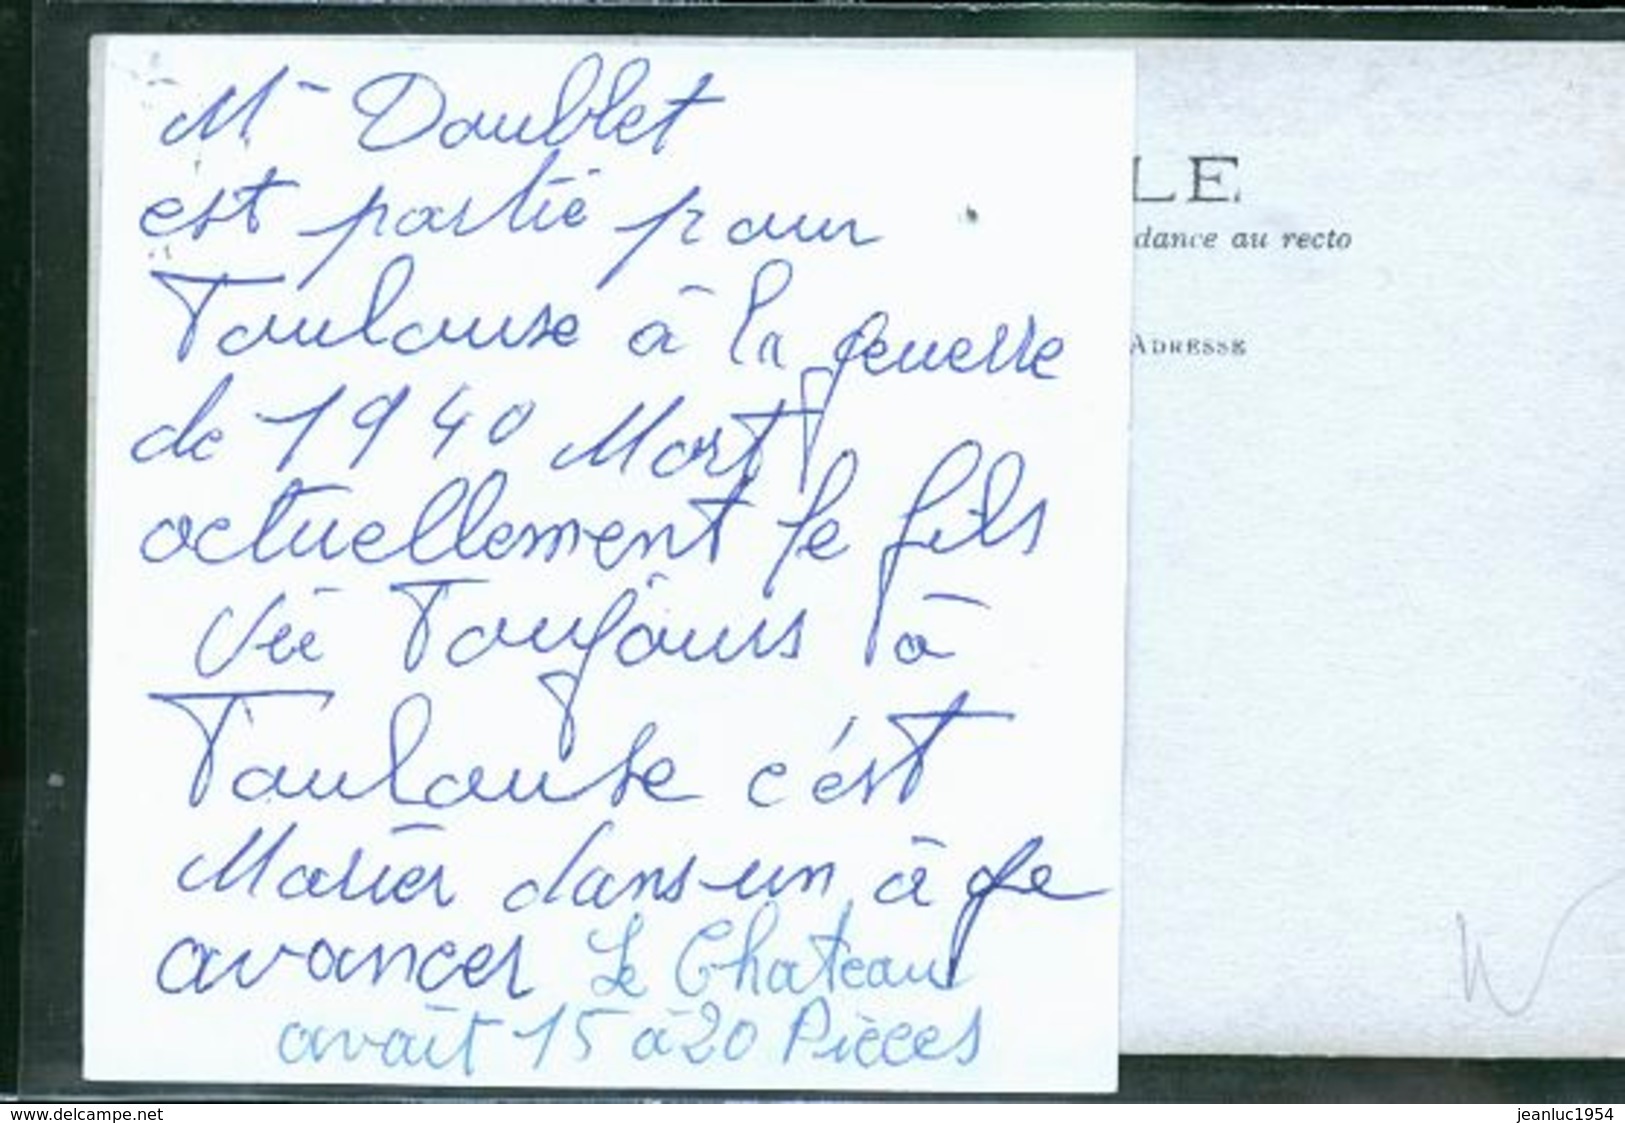 Mr Doublet
est partie pour
Toulouse à la guerre
de 1940 Mort
actuellement le fils
Vie Toujours à
Toulouse c'est
Marier dans un âge
avancer Le Chateau
avait 15 à 20 Pièces
LE
dance au recto
ADRESSE
www.delcampe.net
jeanluc1954